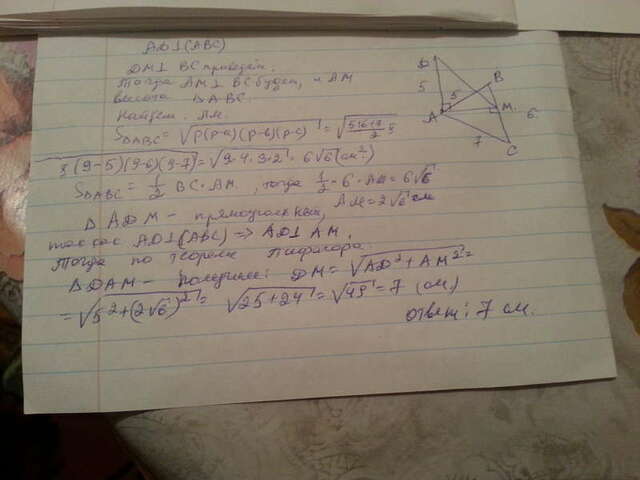 AD⊥(ABC)
DM⊥ BC проведём.
Тогда AM⊥ BC будет, и AM
высота ΔABC.
Найдем AM.
SΔABC = √p(p-a)(p-b)(p-c) = √5+6+7/2
9(9-5)(9-6)(9-7) = √9·4·3·2 = 6√6 (см²)
SΔABC = 1/2 BC·AM, тогда 1/2·6·AM = 6√6
AM = 2√6 см
ΔADM - прямоугольный,
так как AD⊥(ABC) => AD⊥AM.
Тогда по теореме Пифагора
ΔDAM - получим: DM = √AD²+AM² =
= √5²+(2√6)² = √25+24 = √49 = 7 (см)
ответ: 7 см.
D
5
B
5
A
M
6
7
C